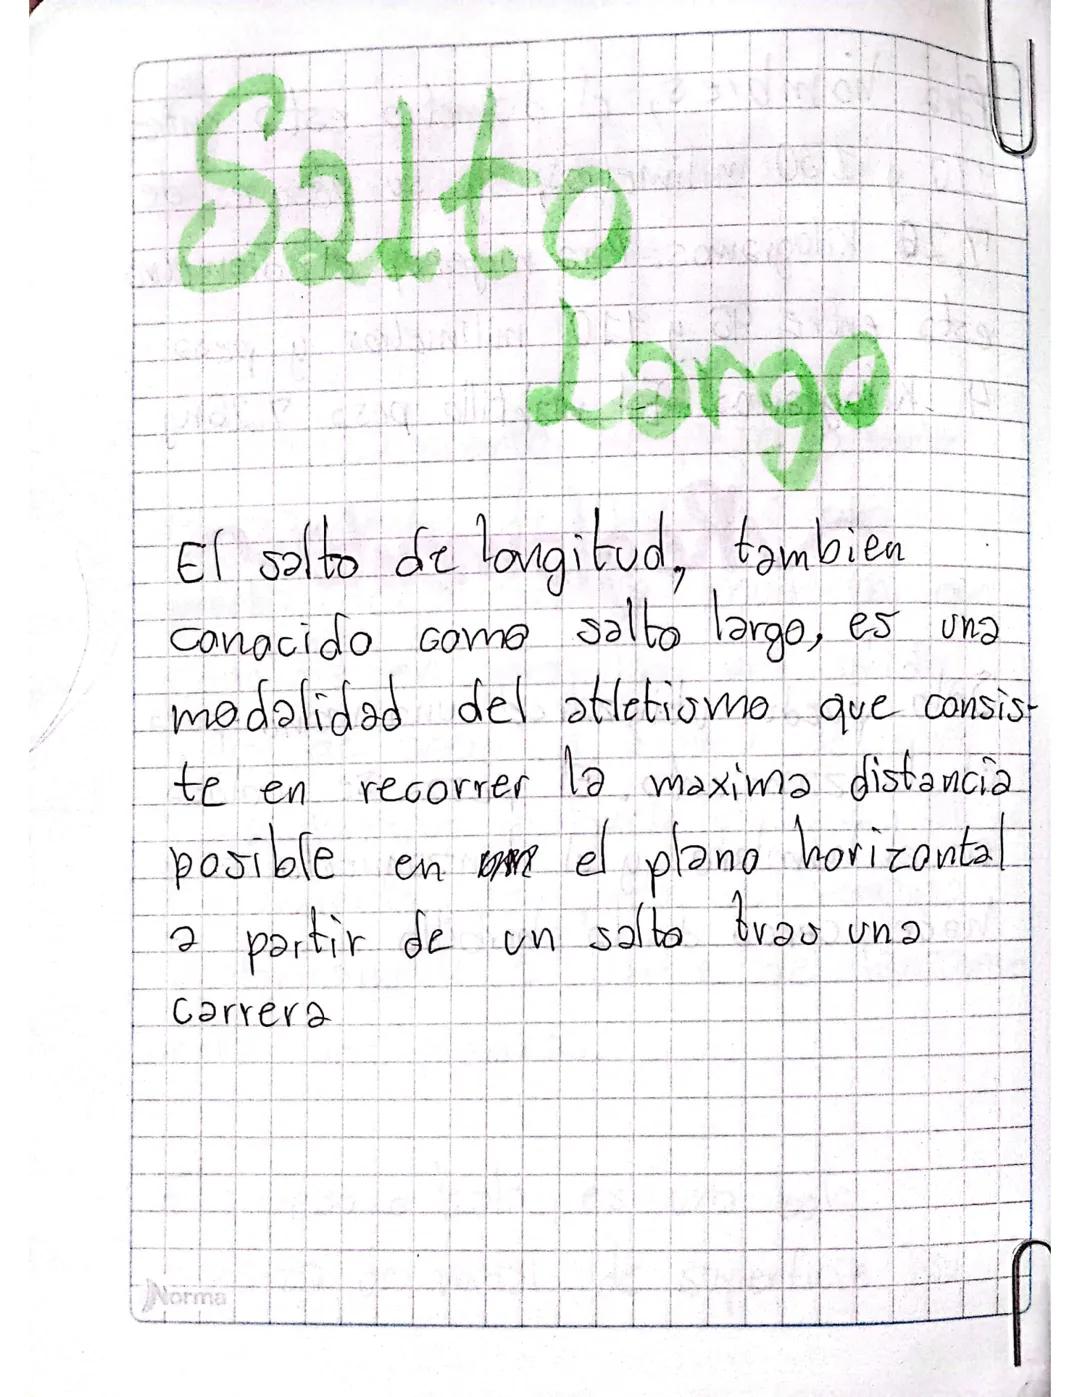 Salto
Largo
El salto de longitud, tambien
conocido como salto largo, es una
modalidad del atletismo que consis-
te en recorrer la maxima distancia
posible en el plano horizontal
a partir de un salto tras una
carrera
Norma